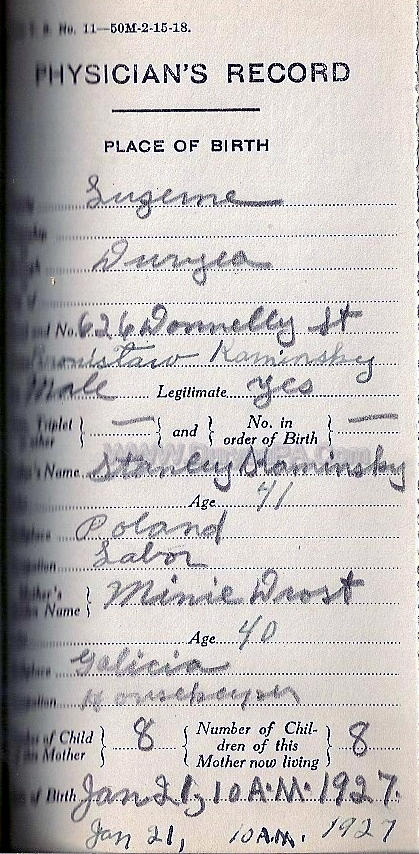 No. 11—50M-2-15-18.
PHYSICIAN'S RECORD
PLACE OF BIRTH
Luzerne
Duryea
and No. 626 Donnelly St
Bronistaw Kaminsky
Male Legitimate yes
Triplet — and No. in order of Birth —
Name Stanley Kaminsky
Age 41
Poland
Labor
Mother's Name Minie Drost
Age 40
Galicia
Housekeeper
of Child Mother 8 Number of Children of this Mother now living 8
of Birth Jan 21, 10 A.M. 1927.
Jan 21, 10 AM. 1927